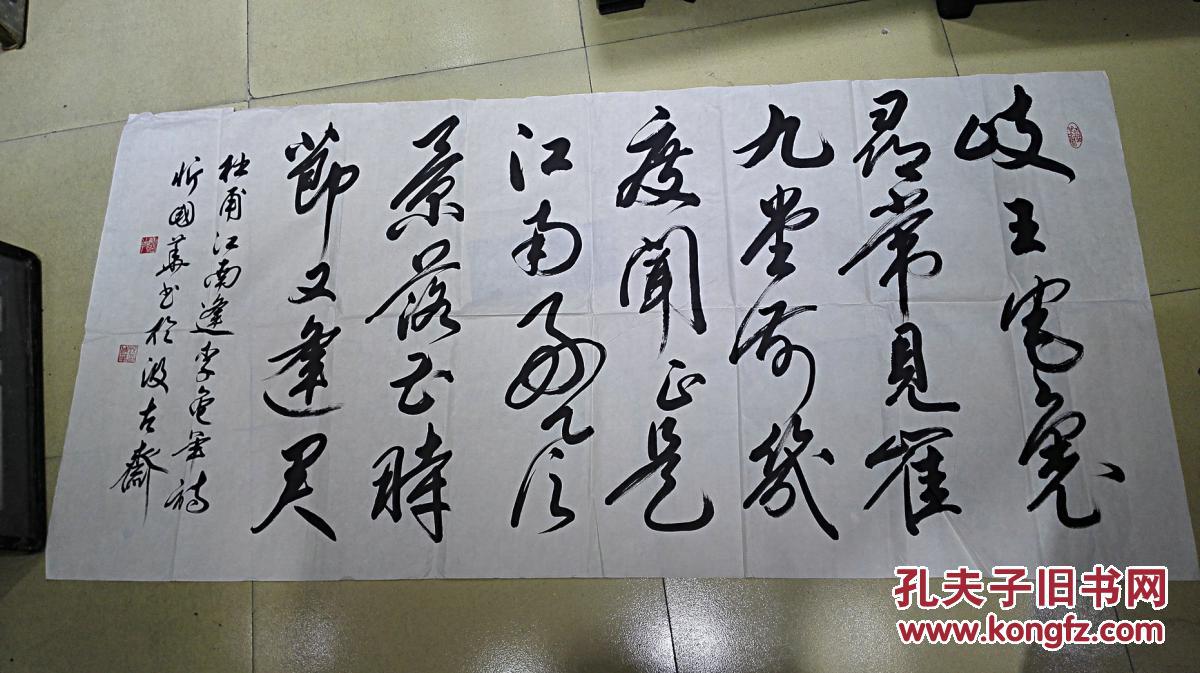 岐王宅裏
尋常見崔
九堂前幾
度聞正是
江南好風
景落花時
節又逢君
杜甫江南逢李龜年詩
忻國華书於汲古齋
孔夫子旧书网
www.kongfz.com